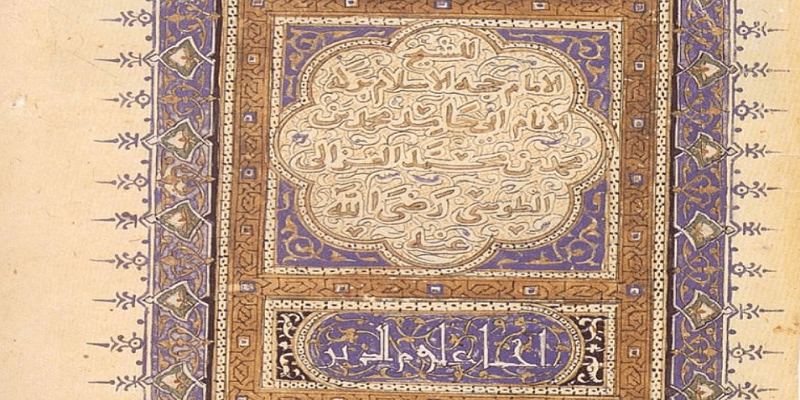 للشيخ
الامام حجه الاسلام بركه
الانام ابى حامد محمد بن
محمد بن محمد الغزالى
الطوسى رَضىَ الله
عنه
احياء علوم الدين